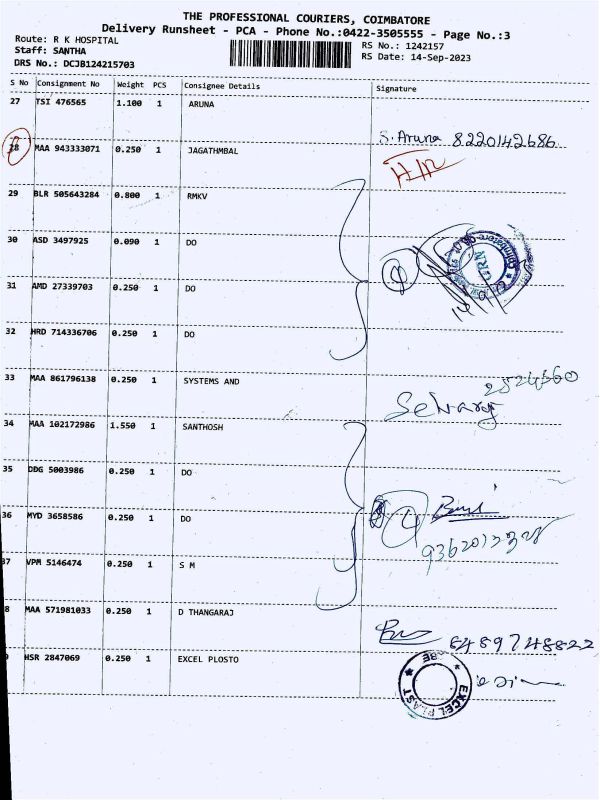 THE PROFESSIONAL COURIERS, COIMBATORE
Delivery Runsheet - PCA - Phone No.:0422-3505555 - Page No.:3
Route: R K HOSPITAL
Staff: SANTHA
DRS No.: DCJB124215703
RS No.: 1242157
RS Date: 14-Sep-2023
S No Consignment No Weight PCS Consignee Details Signature
27 TSI 476565 1.100 1 ARUNA
S. Aruna 8220142686
28 MAA 943333071 0.250 1 JAGATHMBAL
29 BLR 505643284 0.800 1 RMKV
30 ASD 3497925 0.090 1 DO
4
31 AMD 27339703 0.250 1 DO
32 HRD 714336706 0.250 1 DO
33 MAA 861796138 0.250 1 SYSTEMS AND
2524660
Selvaraj
34 MAA 102172986 1.550 1 SANTHOSH
35 DDG 5003986 0.250 1 DO
36 MYD 3658586 0.250 1 DO
4
37 VPM 5146474 0.250 1 S M
8 MAA 571981033 0.250 1 D THANGARAJ
HSR 2847069 0.250 1 EXCEL PLOSTO
EXCEL PLAST